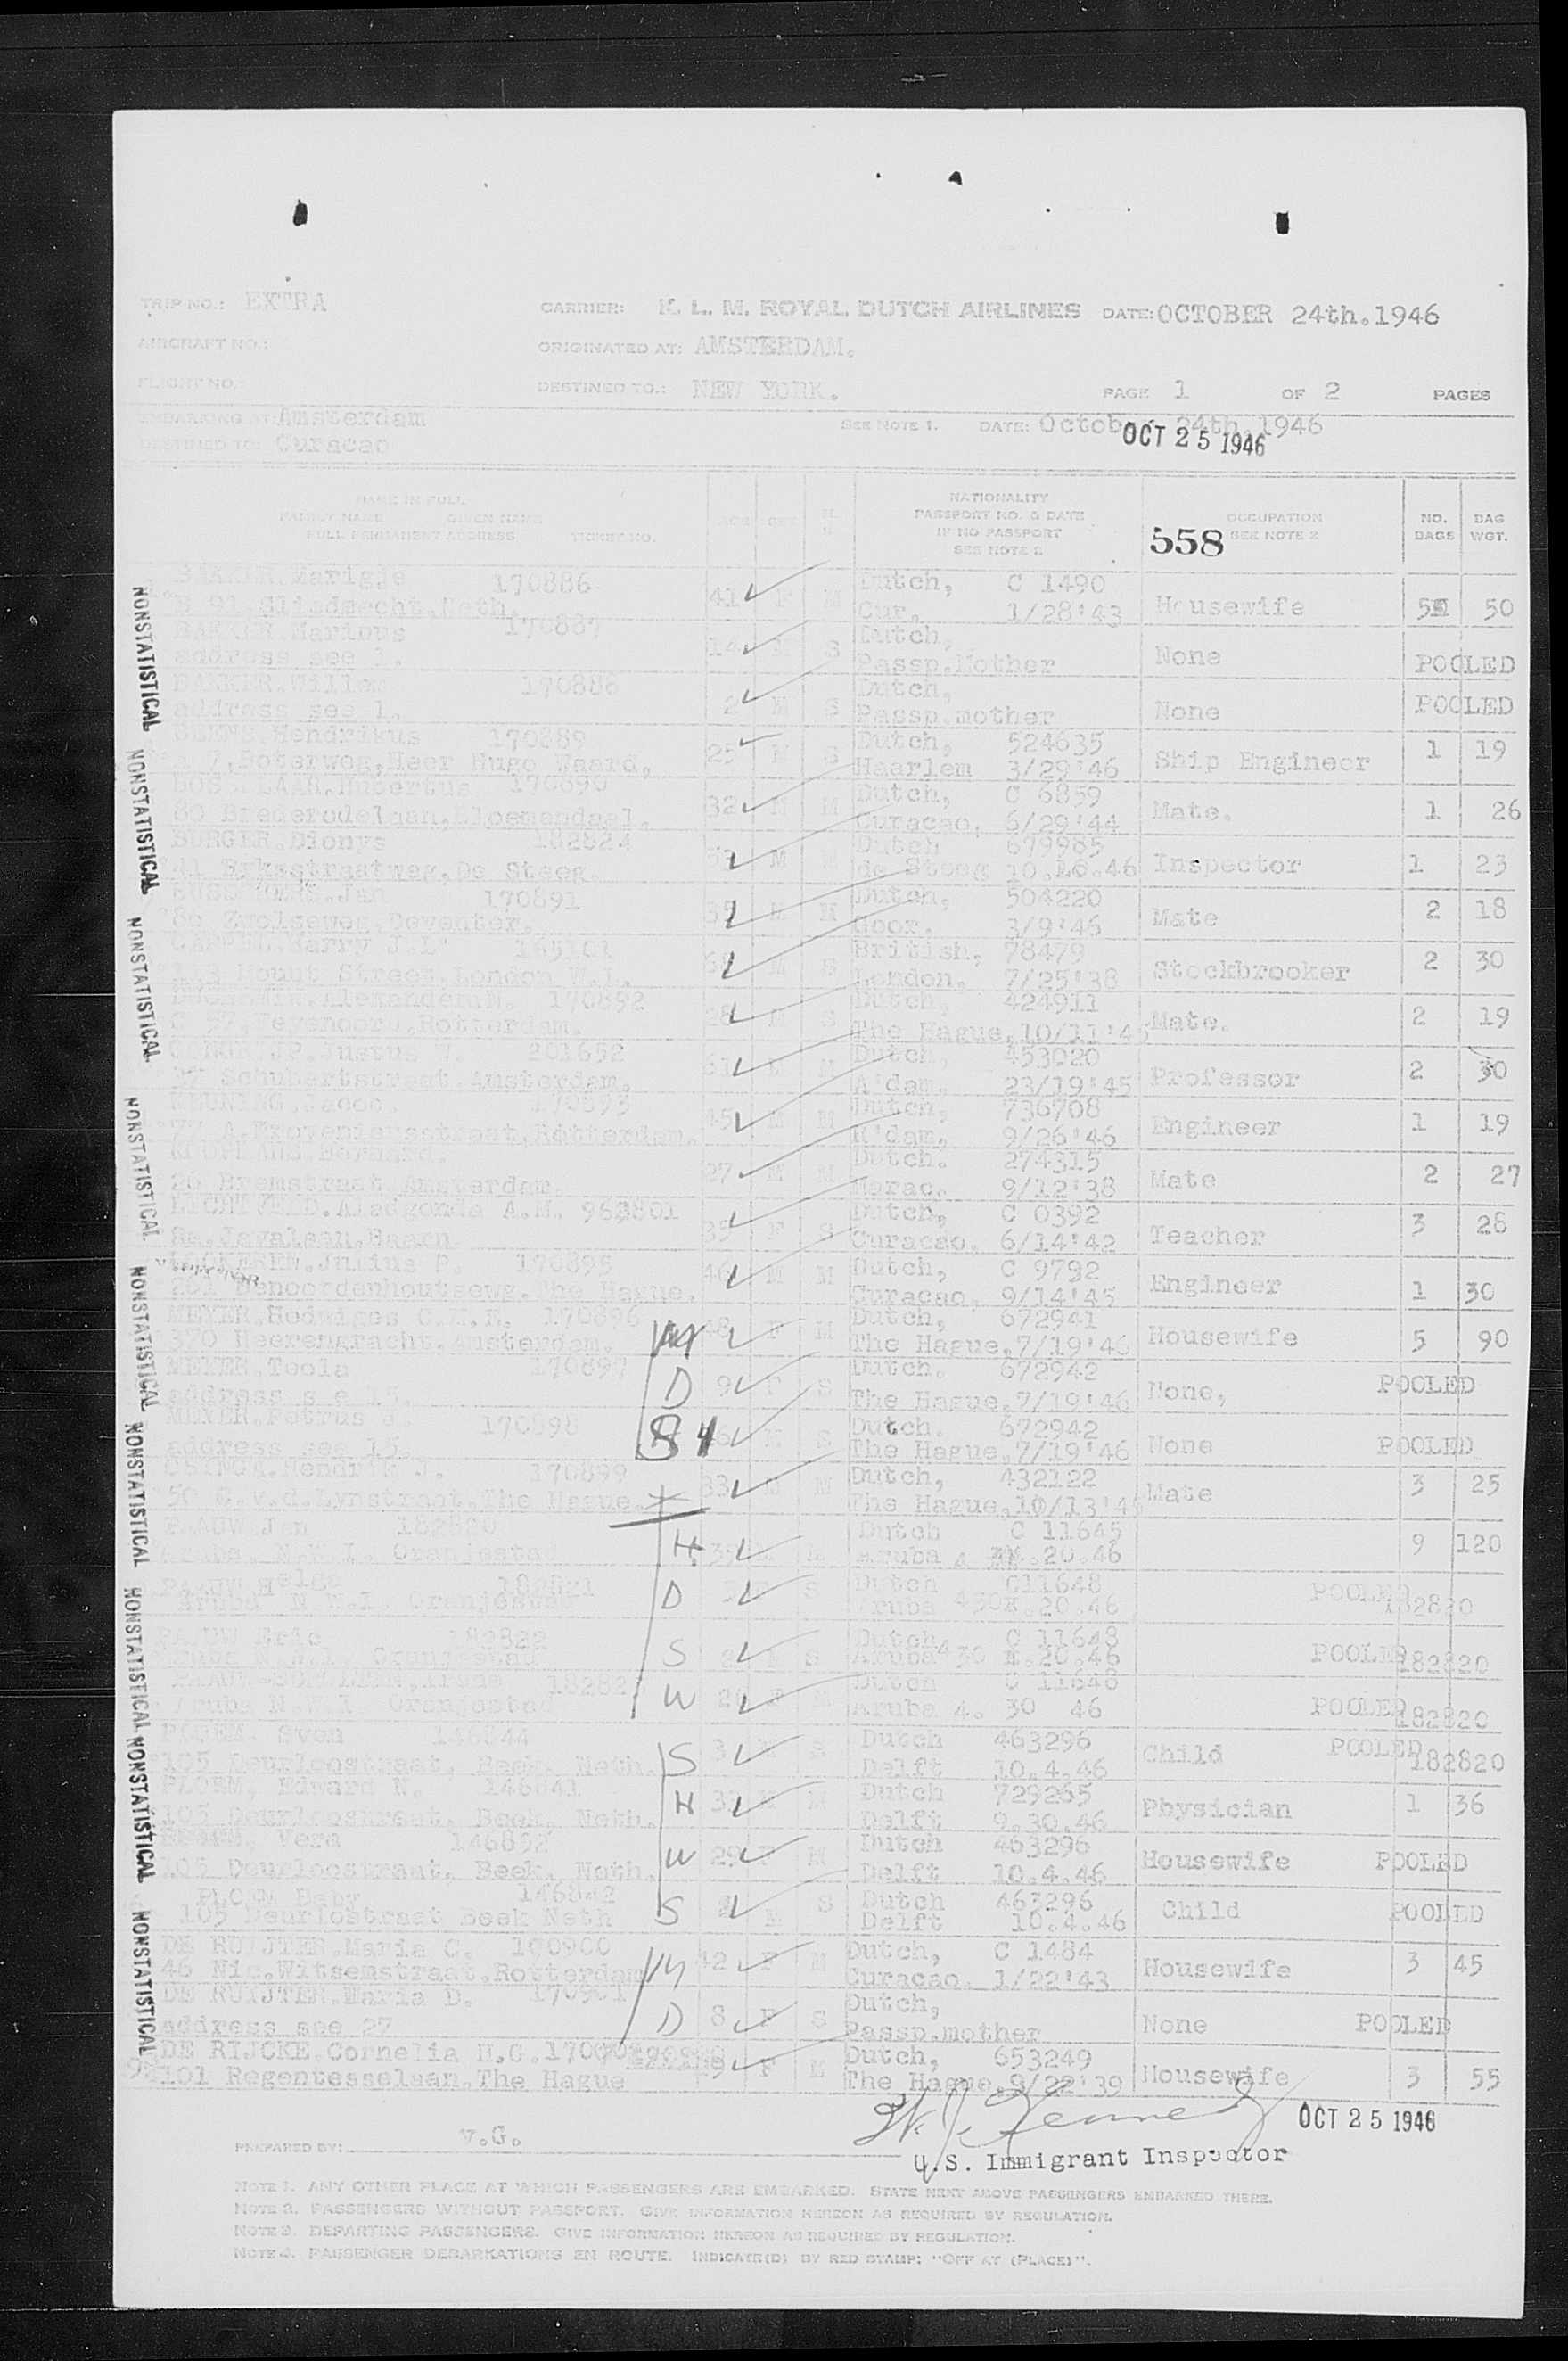 TRIP NO.: EXTRA CARRIER: K. L. M. ROYAL DUTCH AIRLINES DATE: OCTOBER 24th.1946
AIRCRAFT NO.: ORIGINATED AT: AMSTERDAM.
FLIGHT NO.: DESTINED TO.: NEW YORK. PAGE 1 OF 2 PAGES
EMBARKING AT: Amsterdam SEE NOTE 1. DATE: October 24th.1946
DESTINED TO: Curacao OCT 25 1946
NAME IN FULL NATIONALITY
FAMILY NAME GIVEN NAME AGE SEX PASSPORT NO. & DATE OCCUPATION NO. BAG
FULL PERMANENT ADDRESS TICKET NO. IF NO PASSPORT 558 SEE NOTE 2 BAGS WGT.
SEE NOTE 2
BAKKER.Marigje 170886 Dutch, C 1490
B 91 Sliedrecht.Neth. 41 F Cur. 1/28'43 Housewife 50
BAKKER.Marinus 170887 Dutch,
address see 1. 14 M S Passp.Mother None POOLED
BAKKER.Willem 170888 Dutch,
address see 1. 2 M S Passp.mother None POOLED
Hendrikus 170889 Dutch, 524635
7,Boterweg,Heer Hugo Waard, 25 M S Haarlem 3/29'46 Ship Engineer 1 19
Hubertus 170890 Dutch, C 6859
80 Brederodelaan,Bloemendaal. 32 M Curacao, 6/29'44 Mate. 1 26
BURGER.Dionys 182824 Dutch 679985
41 Rykestraatweg,De Steeg. M de Steeg 10.10.46 Inspector 1 23
Jan 170891 Dutch, 504220
86 Zwolseweg.Deventer. M M Goor. 3/9'46 Mate 2 18
Harry J.L. 165101 British, 78479
Mount Street,London M London. 7/25'38 Stockbrooker 2 30
Alexander 170892 Dutch, 424911
Feyenoord,Rotterdam 28 M S The Hague,10/11'45 Mate. 2 19
Justus W. 201652 Dutch, 453020
37 Schubertstraat.Amsterdam. 61 M M A'dam. 23/19'45 Professor 2 30
KEUNING.Jacob. 170893 Dutch, 736708
Rotterdam. 45 M M R'dam. 9/26'46 Engineer 1 19
KOOPMANS.Bernard. Dutch. 274315
Bremstraat.Amsterdam. 27 M M 9/12'38 Mate 2 27
LICHTVELD.Aldegonda A.M. Dutch, C 0392
Javalaan.Baarn 39 F S Curacao. 6/14'42 Teacher 3 28
Julius P. 170895 Dutch, C 9792
261 Benoordenhoutseweg.The Hague. 46 M M Curacao, 9/14'45 Engineer 1 30
MEYER.Hedwiges C.M.H. 170896 Dutch, 672941
370 Heerengracht.Amsterdam. 48 F M The Hague,7/19'46 Housewife 5 90
MEYER.Teola 170897 Dutch. 672942
address see 15. D 9 F S The Hague,7/19'46 None, POOLED
MEYER.Petrus J. 170898 Dutch. 672942
address see 15. S M S The Hague,7/19'46 None POOLED
Hendrik J. 170899 Dutch, 432122
50 C.v.d.Lynstraat.The Hague. 33 M M The Hague,10/13'45 Mate 3 25
PAAUW Jan 182820 Dutch C 11645
Aruba N.W.I. Oranjestad H. 39 M Aruba 4 20.46 9 120
PAAUW Helga 182821 Dutch C11648
Aruba N.W.I. Oranjestad D S Aruba 20.46 POOLED 182820
PAAUW Eric 182822 Dutch C 11648
Aruba N.W.I. Oranjestad S S Aruba 20.46 POOLED 182820
Dutch C 11648
Aruba N.W.I. Oranjestad W 26 F Aruba 4. 30 46 POOLED 182820
PLOEM. Sven 146844 Dutch 463296
105 Deurloostraat, Beek, Neth. S 3 M S Delft 10.4.46 Child POOLED 182820
PLOEM, Edward N. 146841 Dutch 729265
105 Deurloostraat, Beek, Neth. H M Delft 9.30.46 Physician 1 36
PLOEM, Vera 146852 Dutch 463296
105 Deurloostraat, Beek, Neth. W 29 F M Delft 10.4.46 Housewife POOLED
PLOEM Baby 146842 Dutch 463296
105 Deurlostraat Beek Neth S M S Delft 10.4.46 Child POOLED
DE RUIJTER.Maria C. 170900 Dutch, C 1484
46 Nic.Witsemstraat.Rotterdam M 42 F M Curacao. 1/22'43 Housewife 3 45
DE RUIJTER.Maria D. 170901 Dutch,
address see 27 D 8 F S Passp.mother None POOLED
DE RIJCKE.Cornelia H.G. Dutch, 653249
101 Regentesselaan.The Hague F M The Hague.9/22'39 Housewife 3 55
NONSTATISTICAL
NONSTATISTICAL
NONSTATISTICAL
NONSTATISTICAL
NONSTATISTICAL
NONSTATISTICAL
NONSTATISTICAL
NONSTATISTICAL
NONSTATISTICAL
OCT 25 1946
PREPARED BY: v.G.
U.S. Immigrant Inspector
NOTE 1. ANY OTHER PLACE AT WHICH PASSENGERS ARE EMBARKED. STATE NEXT ABOVE PASSENGERS EMBARKED THERE.
NOTE 2. PASSENGERS WITHOUT PASSPORT. GIVE INFORMATION HEREON AS REQUIRED BY REGULATION.
NOTE 3. DEPARTING PASSENGERS. GIVE INFORMATION HEREON AS REQUIRED BY REGULATION.
NOTE 4. PASSENGER DEBARKATIONS EN ROUTE. INDICATE(D) BY RED STAMP: "OFF AT (PLACE)".